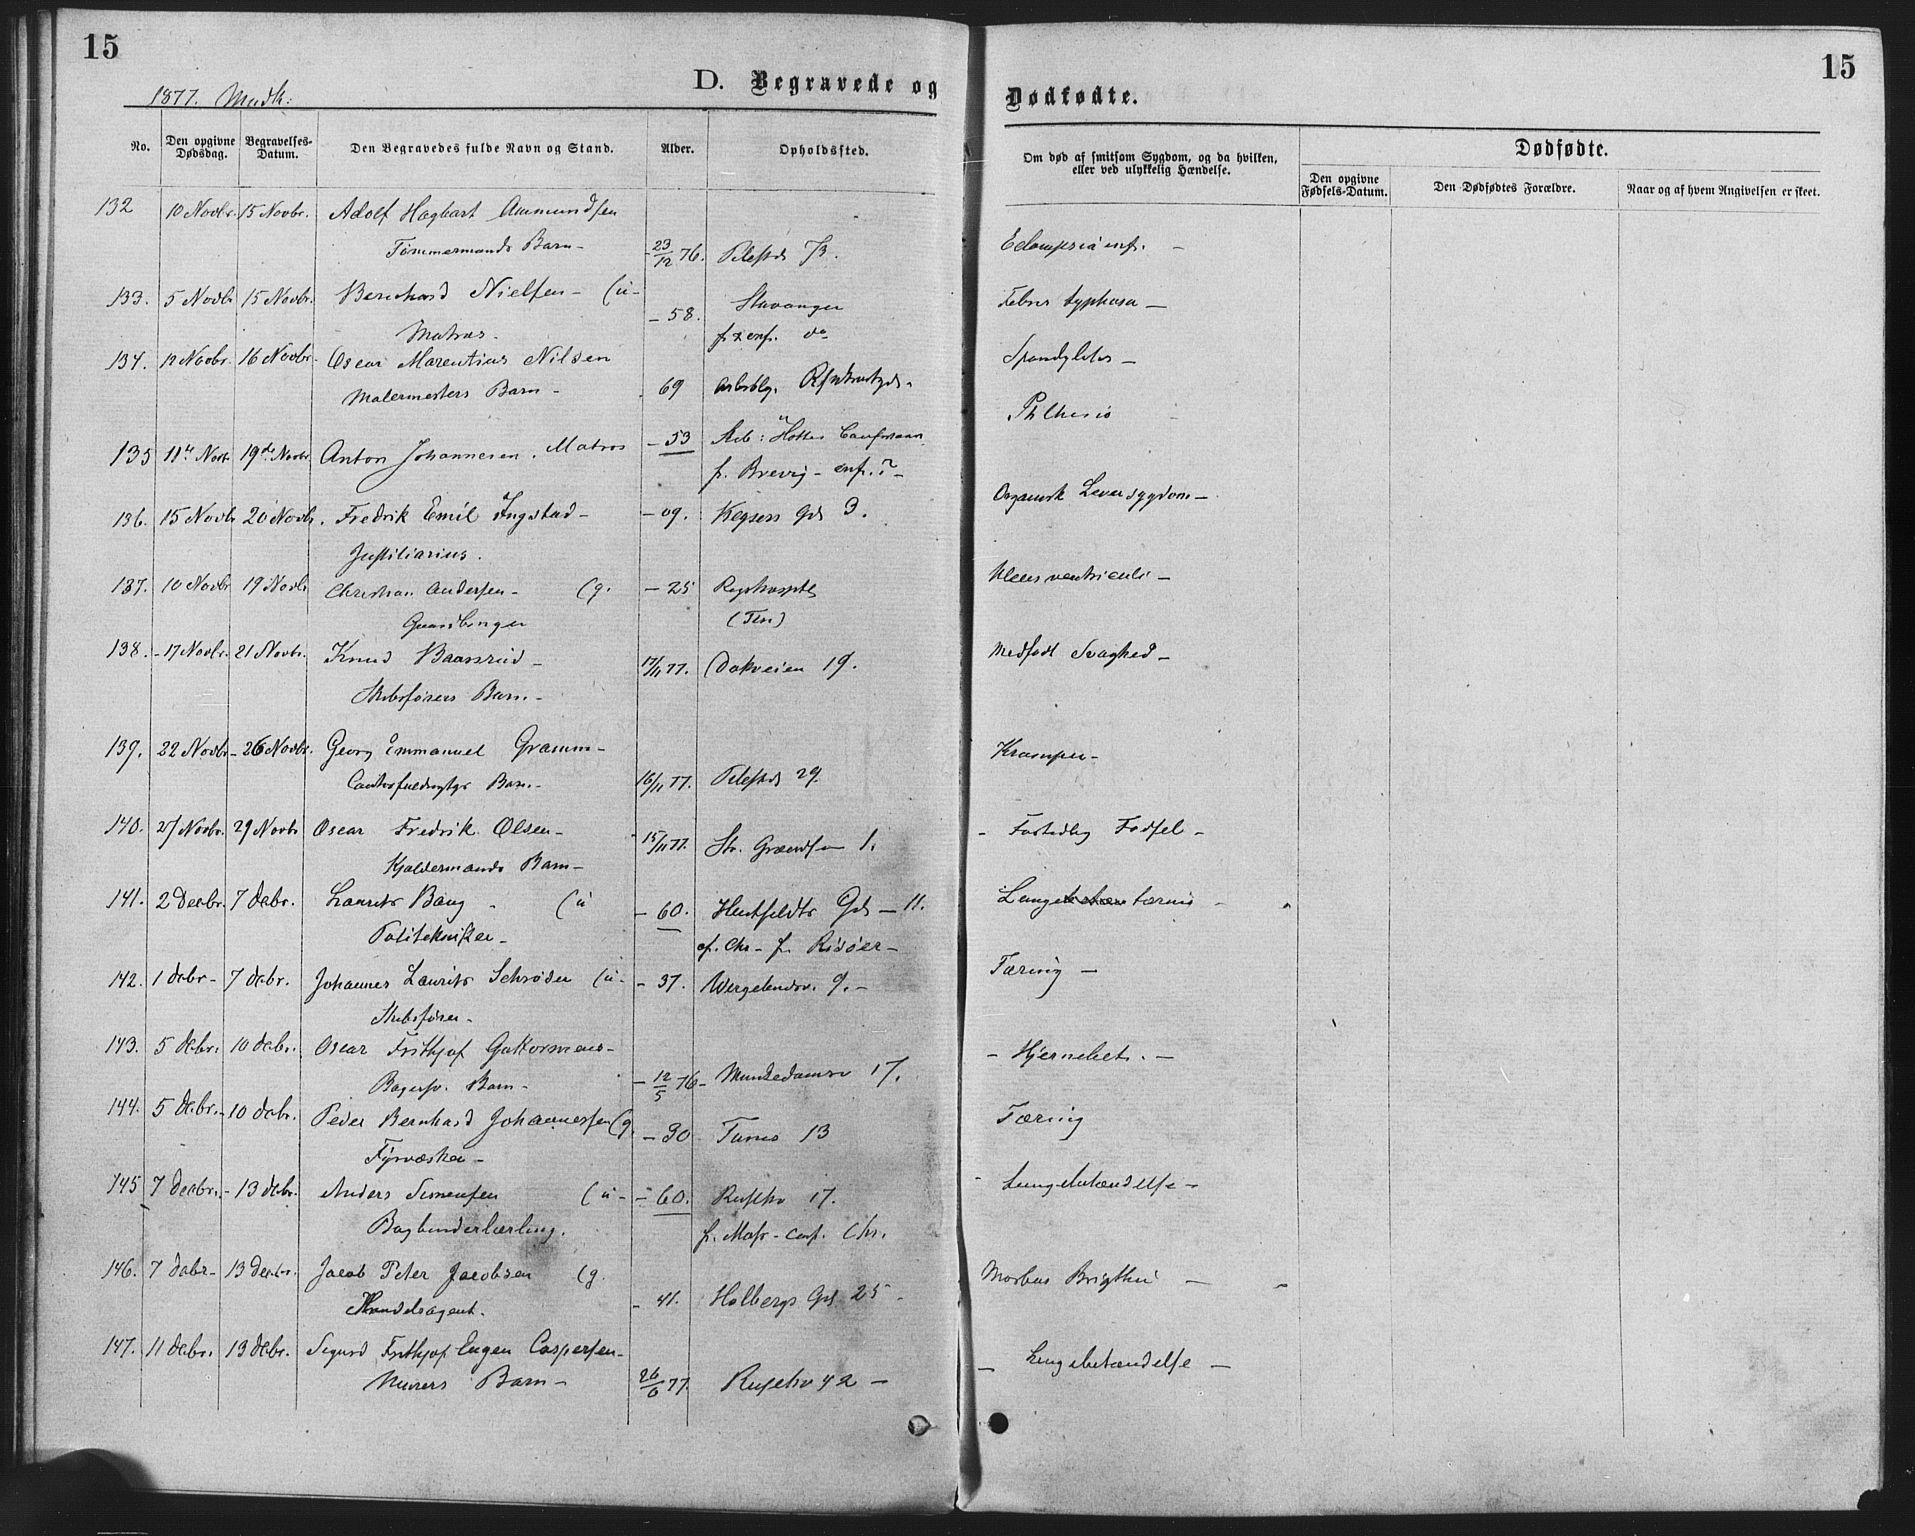 15
1877. Mndk:
D. Begravede og
No. Den opgivne Dødsdag. Begravelses-Datum. Den Begravedes fulde Navn og Stand. Alder. Opholdssted.
132 10 Novbr. 15 Novbr. Adolf Hagbart Ammundsen
Tømmermands Barn - 23/12 76. Pilestd
133. 5 Novbr 15 Novbr. Bernhard Nielsen - (u-
Matros. - 58. Stavanger
134. 12 Novbr. 16 Novbr. Oscar Marentius Nilsen
Malermesters Barn - 69
135 11te Novbr 19de Novbr. Anton Johannesen. Matros - 53
f. Brevig - enf. ? -
136. 15 Novbr 20 Novbr. Fredrik Emil Ingstad - - 09. Keysers Gd 3.
Justitiarius.
137. 10 Novbr 19 Novbr Christian Andersen - (g. - 25 Rigshosptl
Gaardbruger
138. - 17 Novbr. 21 Novbr. Knud Baasrud -
Skibsførers Barn. - 17/11 77. Dokveien 19.
139. 22 Novbr - 26 Novbr. Georg Emmanuel Gramm -
Barn. - 16/11 77. Pilestd 29.
140. 27 Novbr. 29 Novbr Oscar Fredrik Olsen -
Kjældermands Barn - 15/11 77. St. Grændsen 1.
141. 2 Decbr. 7 Decbr. Laurits Bang - (u - 60. Huitfeldts Gd - 11.
Politekniker - f. Risøer -
142. 1 Decbr - 7 Decbr. Johannes Laurits Schrøder (u - - 37. Wergelandsv. 9. -
Skibsfører -
143. 5 Decbr. 10 Decbr. Oscar Frithjof Guttormsen -
Bagersv. Barn - - 12/5 76 - Munkedamsv 17.
144. 5 Decbr. - 10 Decbr. Peder Bernhard Johannessen (g. - 30 13
Fyrvæsker -
145 7 Decbr. - 13 Decbr. Anders Simensen (u - - 60. Ruselv 17.
Bogbinderlærling. f. Moss - conf. Chr.
146. 7 Decbr - 13 Decbr. Jacob Peter Jacobsen (g.
Handelsagent. - 41. Holbergs Gd 25 -
147. 11 Decbr. 13 Decbr. Sigurd Frithjof Eugen Caspersen -
Murers Barn - 26/6 77. Ruselv 42 -
15
Dødfødte.
Om død af smitsom Sygdom, og da hvilken, eller ved ulykkelig Hændelse.
Dødfødte.
Den opgivne Fødsels-Datum. Den Dødfødtes Forældre. Naar og af hvem Angivelsen er skeet.
Eclampsia inf. -
Febris typhosa -
Phthisis
Organisk Leversygdom -
Ulcus ventriculi -
Medfødt Svaghed -
Kramper -
- Fortidlig Fødsel -
Lungetæring -
Tæring -
- Hjernebet. -
Tæring
- Lungebetændelse -
Morbus Brigthii -
- Lungebetændelse -